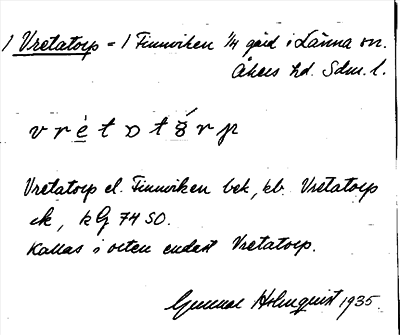 1 Vretatorp = 1 Finnviken 1/4 gård i Länna sn.
Åkers hd. Sdm. l.
vretatorp
Vretatorp el. Finnviken bek, kb. Vretatorp
ek, kG 74 SO.
Kallas i orten endast Vretatorp.
Gunnar Holmquist 1935.